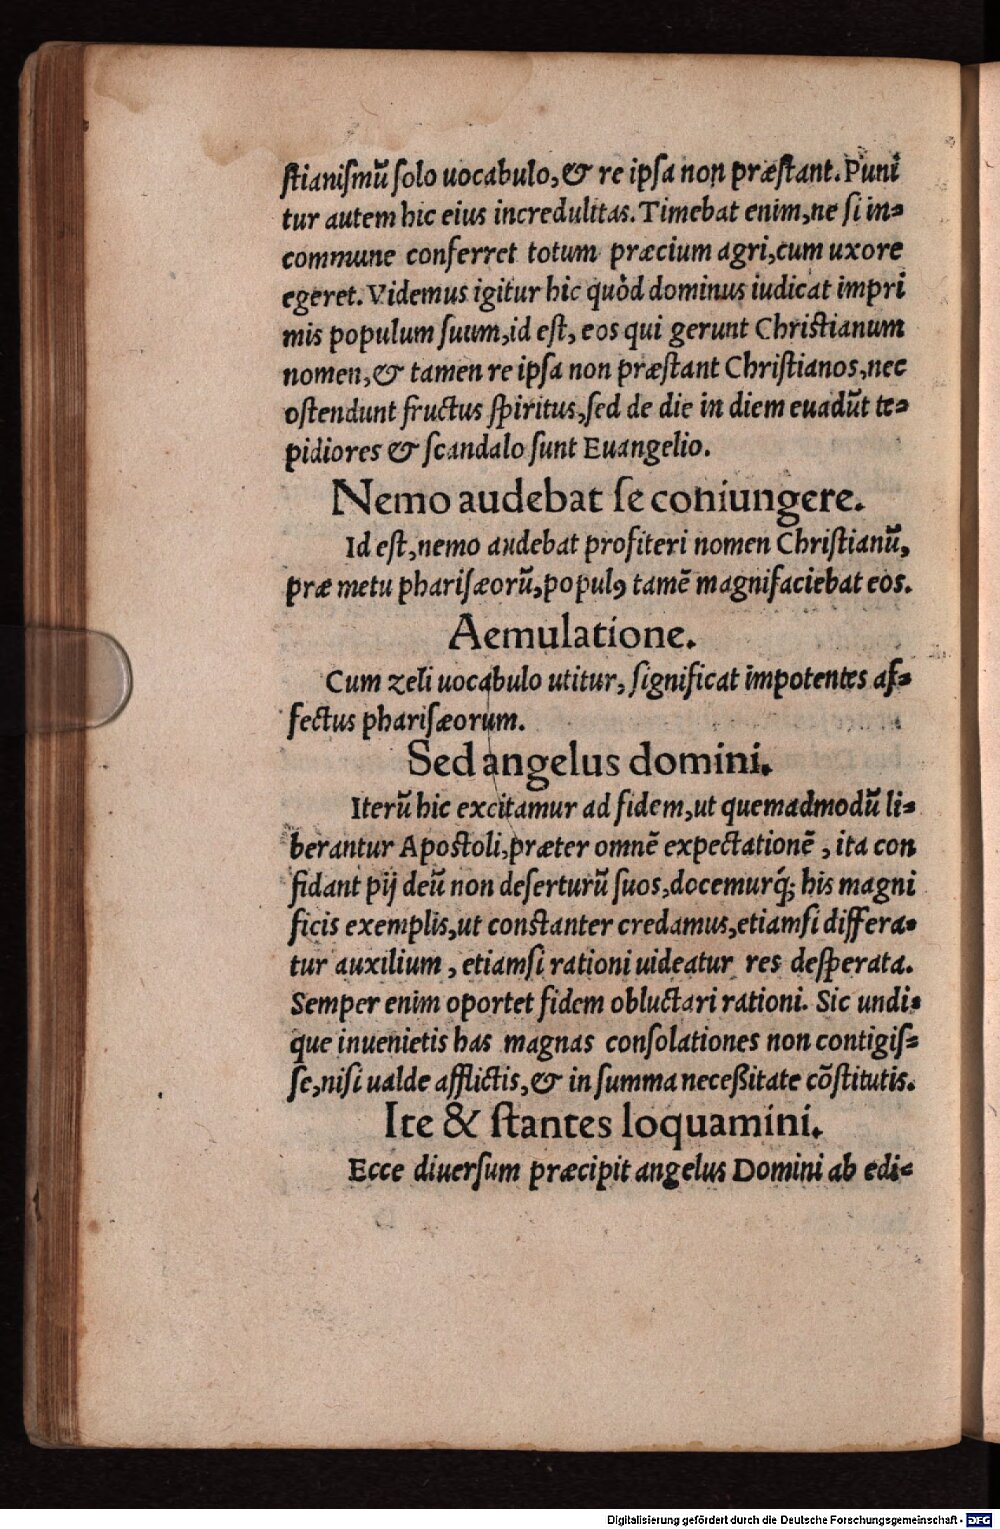 stianismũ solo uocabulo, & re ipsa non præstant. Puni
tur autem hic eius incredulitas. Timebat enim, ne si in=
commune conferret totum præcium agri, cum uxore
egeret. Videmus igitur hic quòd dominus iudicat impri
mis populum suum, id est, eos qui gerunt Christianum
nomen, & tamen re ipsa non præstant Christianos, nec
ostendunt fructus spiritus, sed de die in diem euadũt te=
pidiores & scandalo sunt Euangelio.
Nemo audebat se coniungere.
Id est, nemo audebat profiteri nomen Christianũ,
præ metu pharisæorũ, populꝰ tamẽ magnifaciebat eos.
Aemulatione.
Cum zeli uocabulo utitur, significat impotentes af=
fectus pharisæorum.
Sed angelus domini.
Iterũ hic excitamur ad fidem, ut quemadmodũ li=
berantur Apostoli, præter omnẽ expectationẽ, ita con
fidant pij deũ non deserturũ suos, docemurq́; his magni
ficis exemplis, ut constanter credamus, etiamsi differa=
tur auxilium, etiamsi rationi uideatur res desperata.
Semper enim oportet fidem obluctari rationi. Sic undi=
que inuenietis has magnas consolationes non contigis=
se, nisi ualde afflictis, & in summa neceßitate cõstitutis.
Ite & stantes loquamini.
Ecce diuersum præcipit angelus Domini ab edi=
Digitalisierung gefördert durch die Deutsche Forschungsgemeinschaft - DFG